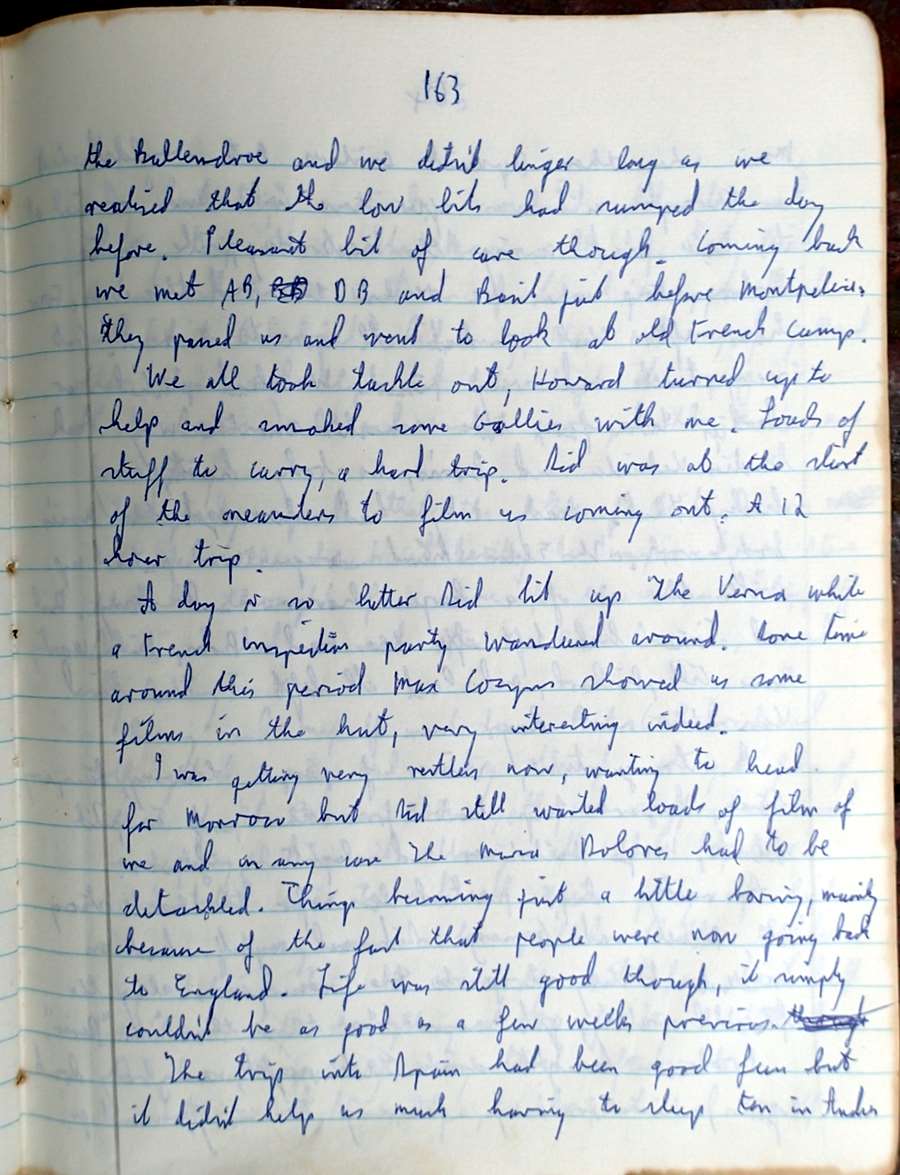 163
the Ballendroe and we didn't linger long as we
realised that the low bits had sumped the day
before. Pleasant bit of cave though. Coming back
we met AB, DB and Basil just before Montpelier,
they passed us and went to look at old French Camp.
We all took tackle out, Howard turned up to
help and smoked some Gallies with me. Loads of
stuff to carry, a hard trip. Sid was at the start
of the meanders to film us coming out. A 12
hour trip.
A day or so later Sid lit up the Verna while
a French inspection party wandered around. Some time
around this period Max Cosyns showed us some
films in the hut, very interesting indeed.
I was getting very restless now, wanting to head
for Morrow but Sid still wanted loads of film of
me and in any case the Maria Dolores had to be
detackled. Things becoming just a little boring, mainly
because of the fact that people were now going back
to England. Life was still good though, it simply
couldn't be as good as a few weeks previous.
The trip into Spain had been good fun but
it didn't help us much having to sleep ten in